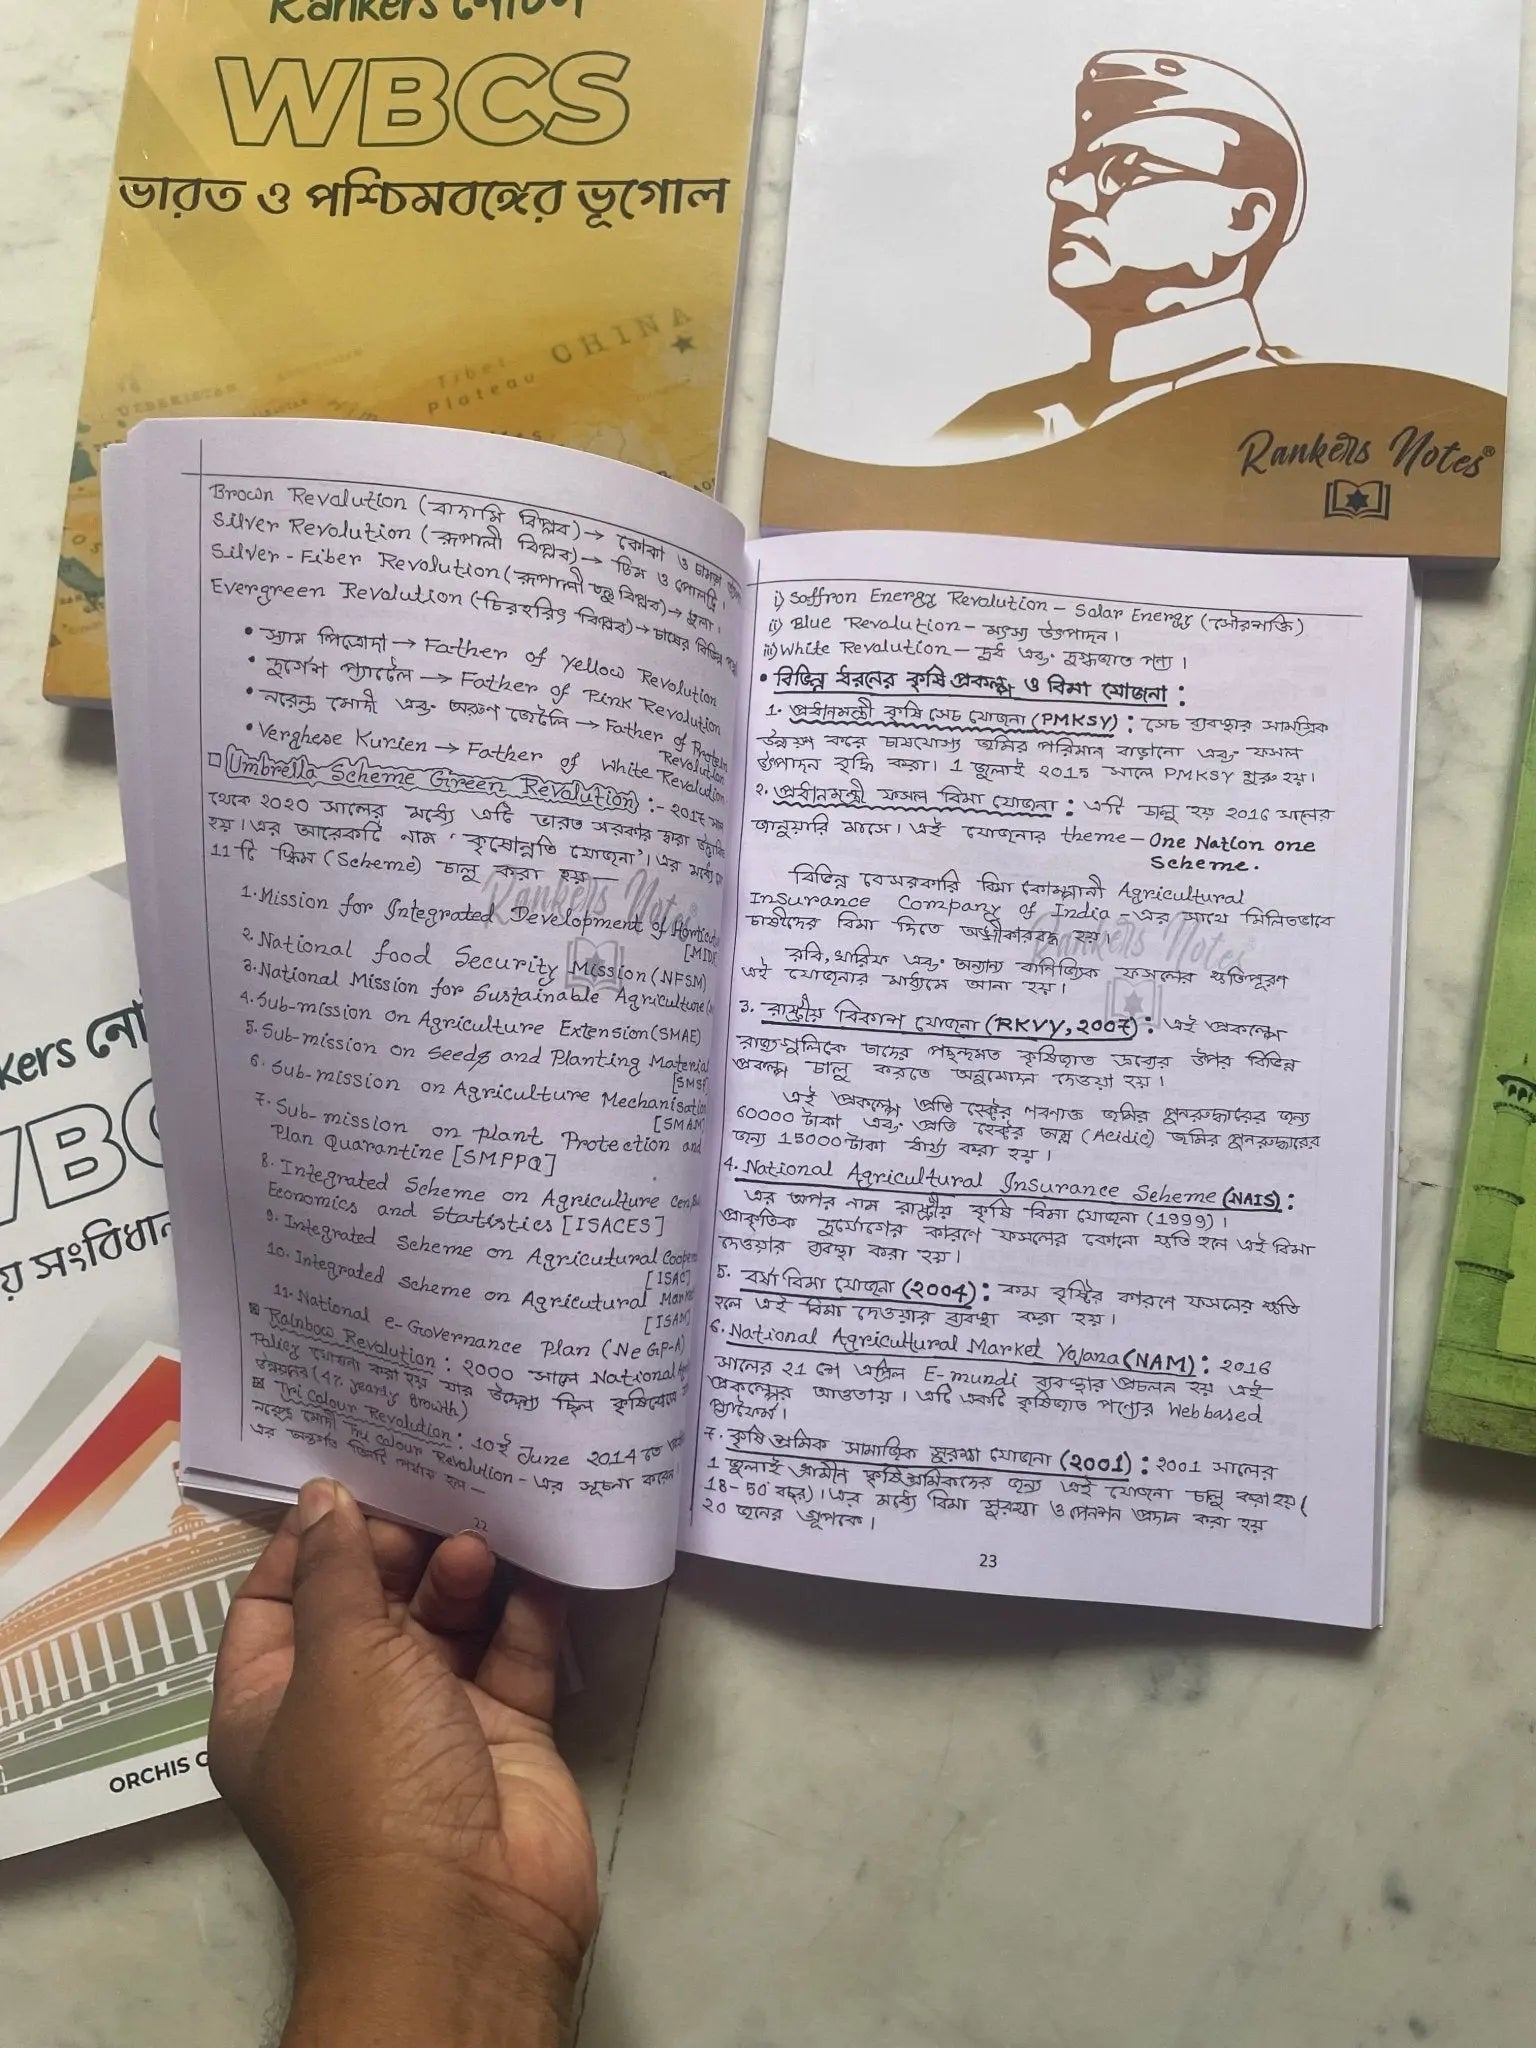 Rankers নোটস
WBCS
ভারত ও পশ্চিমবঙ্গের ভূগোল
CHINA
Tibet
Plateau
UZBEKISTAN
Rankers Notes®
Brown Revolution (বাদামি বিপ্লব) → কোকো ও চামড়া
Silver Revolution (রূপালী বিপ্লব) → ডিম ও পোলট্রি।
Silver-Fiber Revolution (রূপালী তন্তু বিপ্লব) → তুলা।
Evergreen Revolution (চিরহরিৎ বিপ্লব) → চাষের বিভিন্ন
• স্যাম পিত্রোদা → Father of Yellow Revolution
• দুর্গেশ প্যাটেল → Father of Pink Revolution
• নরেন্দ্র মোদী এবং অরুণ জেটলি → Father of Protein
Revolution
• Verghese Kurien → Father of White Revolution
Umbrella Scheme Green Revolution :- 2017
থেকে 2020 সালের মধ্যে এটি ভারত সরকার দ্বারা
হয়। এর আরেকটি নাম 'কৃষোন্নতি যোজনা'। এর মধ্যে
11 টি স্কিম (Scheme) চালু করা হয় —
1. Mission for Integrated Development of
[MID
2. National food Security Mission (NFSM)
3. National Mission for Sustainable Agriculture
4. Sub-mission on Agriculture Extension (SMAE)
5. Sub-mission on Seeds and Planting Material
[SMSP
6. Sub-mission on Agriculture Mechanisation
[SMAM
7. Sub-mission on plant Protection and
Plan Quarantine [SMPPQ]
8. Integrated Scheme on Agriculture
Economics and Statistics [ISACES]
9. Integrated Scheme on Agricutural
[ISAC
10. Integrated Scheme on Agricutural
[ISAM
11. National e-Governance Plan (NeGP-A)
Rainbow Revolution : 2000 সালে National
Policy ঘোষনা করা হয় যার উদ্দেশ্য ছিল
উন্নয়নের (4% yearly growth)
Tri Colour Revolution : 10ই June 2014 তে
নরেন্দ্র মোদী Tri Colour Revolution - এর সূচনা করেন
এর অন্তর্গত তিনটি পর্যায় হল —
22
i) Saffron Energy Revolution — Solar Energy (সৌরশক্তি)
ii) Blue Revolution — মৎস্য উৎপাদন।
iii) White Revolution — দুধ এবং দুগ্ধজাত পণ্য।
• বিভিন্ন ধরনের কৃষি প্রকল্প ও বিমা যোজনা :
1. প্রধানমন্ত্রী কৃষি সেচ যোজনা (PMKSY) : সেচ ব্যবস্থার সামগ্রিক
উন্নয়ন করে চাষযোগ্য জমির পরিমান বাড়ানো এবং ফসল
উৎপাদন বৃদ্ধি করা। 1 জুলাই 2015 সালে PMKSY শুরু হয়।
2. প্রধানমন্ত্রী ফসল বিমা যোজনা : এটি চালু হয় 2016 সালের
জানুয়ারি মাসে। এই যোজনার theme — One Nation one
Scheme.
বিভিন্ন বেসরকারি বিমা কোম্পানী Agricultural
Insurance Company of India - এর সাথে মিলিতভাবে
চাষীদের বিমা দিতে অঙ্গীকারবদ্ধ হয়।
রবি, খারিফ এবং অন্যান্য বাণিজ্যিক ফসলের ক্ষতিপূরণ
এই যোজনার মাধ্যমে আনা হয়।
3. রাষ্ট্রীয় বিকাশ যোজনা (RKVY, 2007) : এই প্রকল্পে
রাজ্যগুলিকে তাদের পছন্দমত কৃষিজাত দ্রব্যের উপর বিভিন্ন
প্রকল্প চালু করতে অনুমোদন দেওয়া হয়।
এই প্রকল্পে প্রতি হেক্টর লবণাক্ত জমির পুনরুদ্ধারের জন্য
60000 টাকা এবং প্রতি হেক্টর অম্ল (Acidic) জমির পুনরুদ্ধারের
জন্য 15000 টাকা ধার্য্য করা হয়।
4. National Agricultural Insurance Scheme (NAIS) :
এর অপর নাম রাষ্ট্রীয় কৃষি বিমা যোজনা (1999)।
প্রাকৃতিক দুর্যোগের কারণে ফসলের কোনো ক্ষতি হলে এই বিমা
দেওয়ার ব্যবস্থা করা হয়।
5. বর্ষা বিমা যোজনা (2004) : কম বৃষ্টির কারণে ফসলের ক্ষতি
হলে এই বিমা দেওয়ার ব্যবস্থা করা হয়।
6. National Agricultural Market Yojana (NAM) : 2016
সালের 21 শে এপ্রিল E-mundi ব্যবস্থার প্রচলন হয় এই
প্রকল্পের আওতায়। এটি একটি কৃষিজাত পণ্যের Web based
প্ল্যাটফর্ম।
7. কৃষি শ্রমিক সামাজিক সুরক্ষা যোজনা (2001) : 2001 সালের
1 জুলাই গ্রামীন কৃষি শ্রমিকদের জন্য এই যোজনা চালু করা হয় (
18-50 বছর)। এর মধ্যে বিমা সুরক্ষা ও পেনশন প্রদান করা হয়
20 জনের গ্রুপকে।
23
Rankers Notes
Rankers Notes
kers নো
WBC
য় সংবিধান
ORCHIS